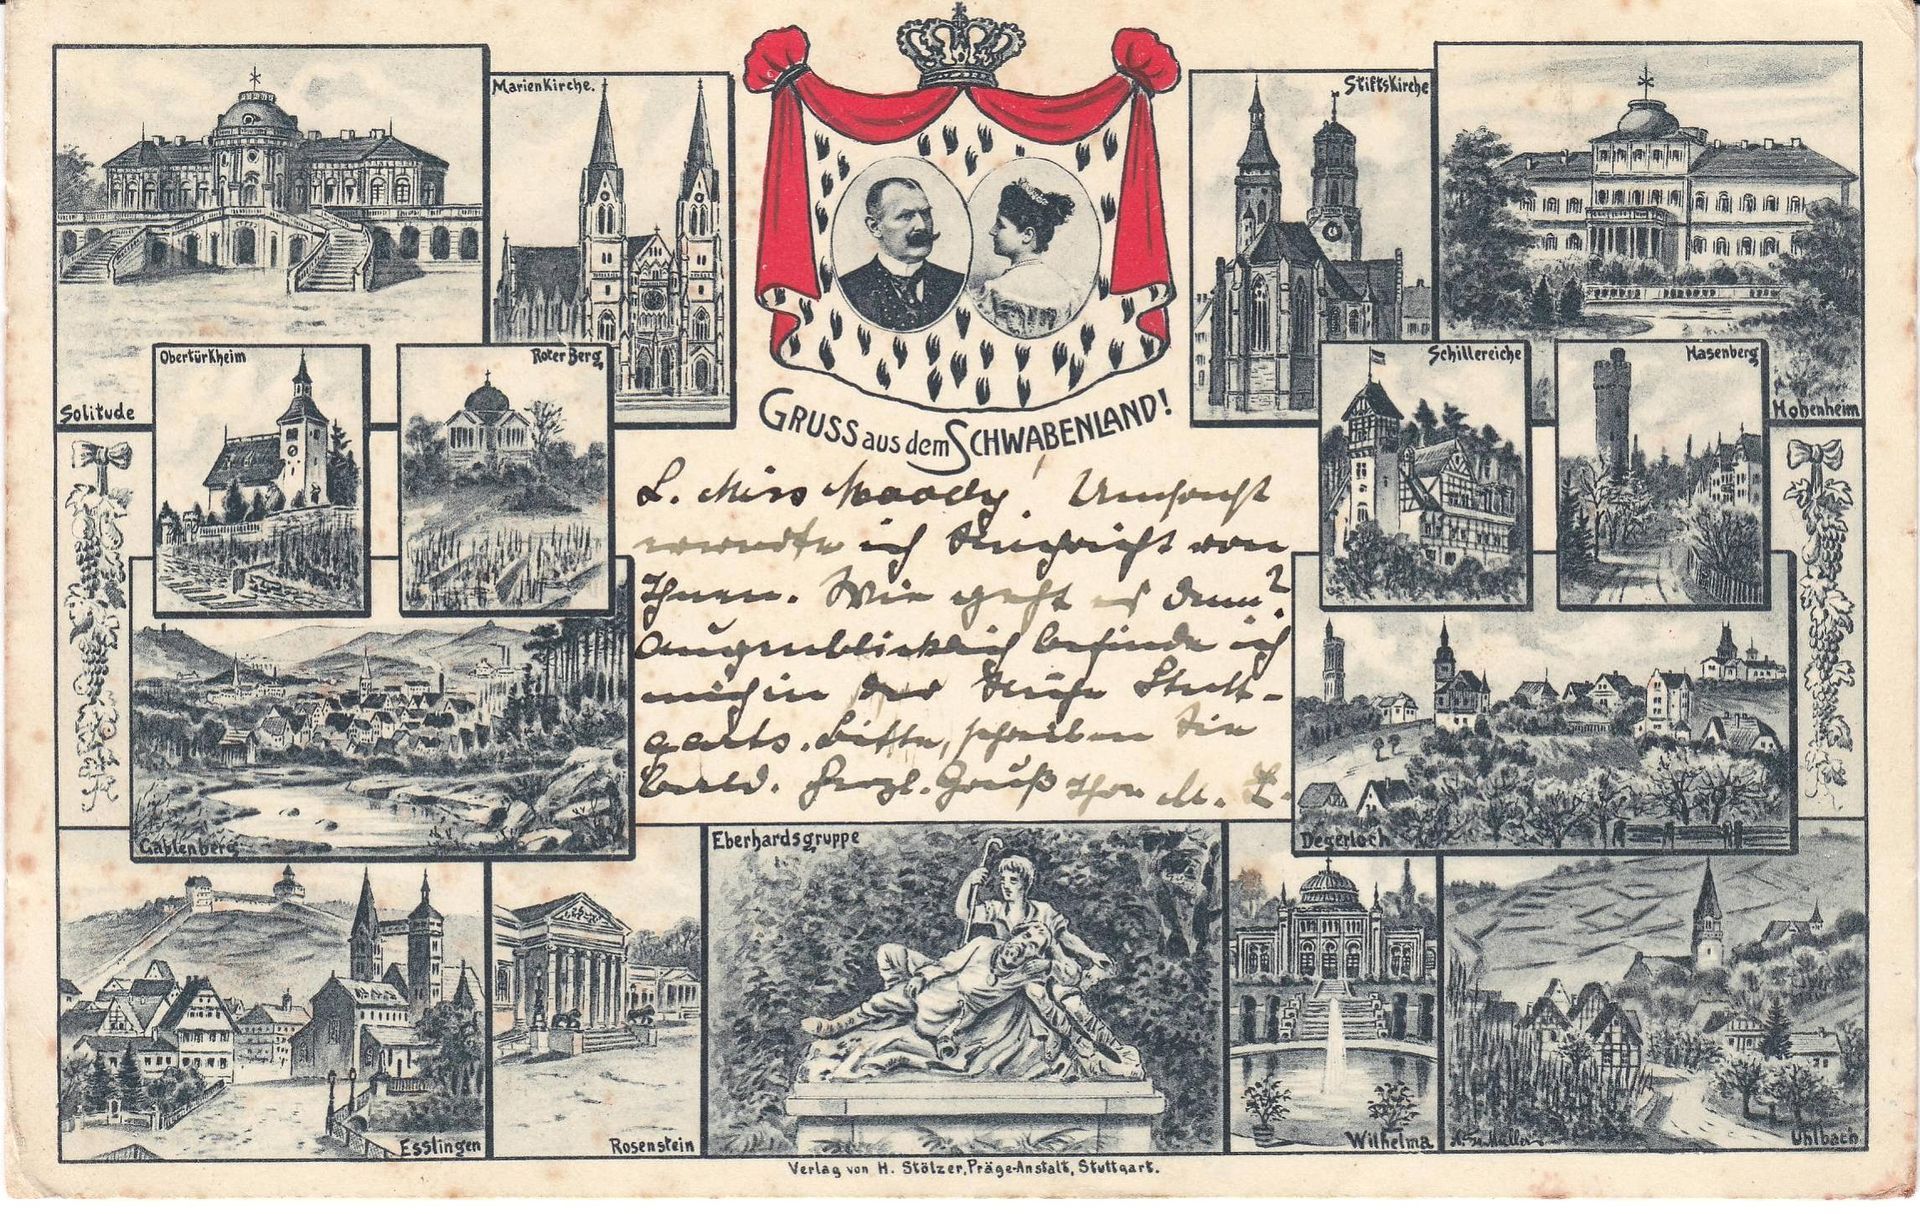 Marienkirche.
Stiftskirche
Obertürkheim
Roter Berg
Schillereiche
Hasenberg
Solitude
Hohenheim
GRUSS aus dem SCHWABENLAND!
L. Miss Moody! Umsonst
erwarte ich Nachricht von
Ihnen. Wie geht es denn?
Augenblicklich befinde ich
mich in der Nähe Stutt-
garts. Bitte, schreiben Sie
bald. Herzl. Gruß Ihre M. L.
Eberhardsgruppe
Degerloch
Gablenberg
Esslingen
Rosenstein
Wilhelma
Müller
Uhlbach
Verlag von H. Stölzer, Präge-Anstalt, Stuttgart.